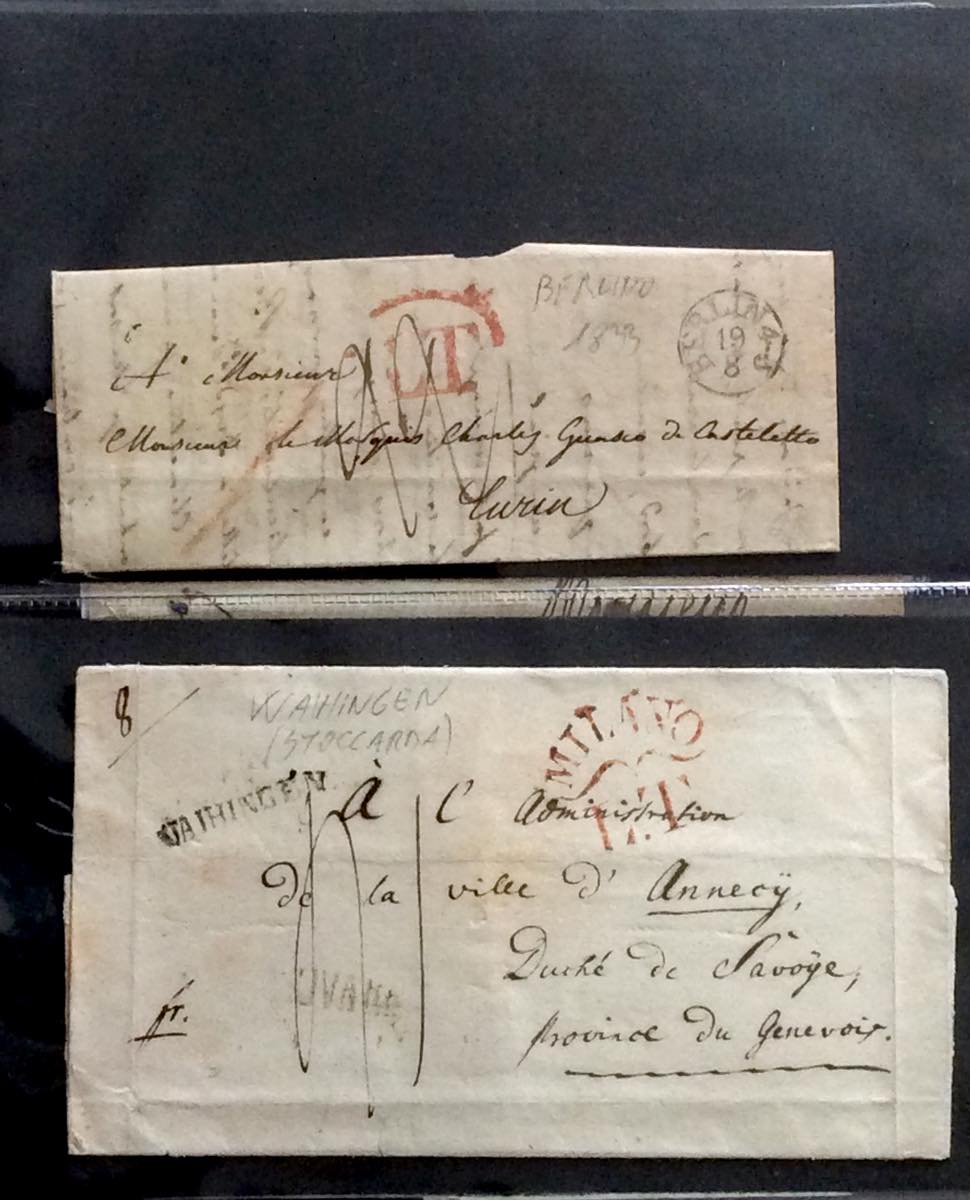 LT
BERLINO
1833
BERLIN
19
8
A Monsieur
Monsieur le Marquis Charles de Casteletto
Turin
8
WAIHINGEN
(STOCCARDA)
MILANO
L.T.
VAIHINGEN.
À l'Administration
de la ville d'Annecÿ,
Duché de Savoÿe,
province du Genevois.
fr.